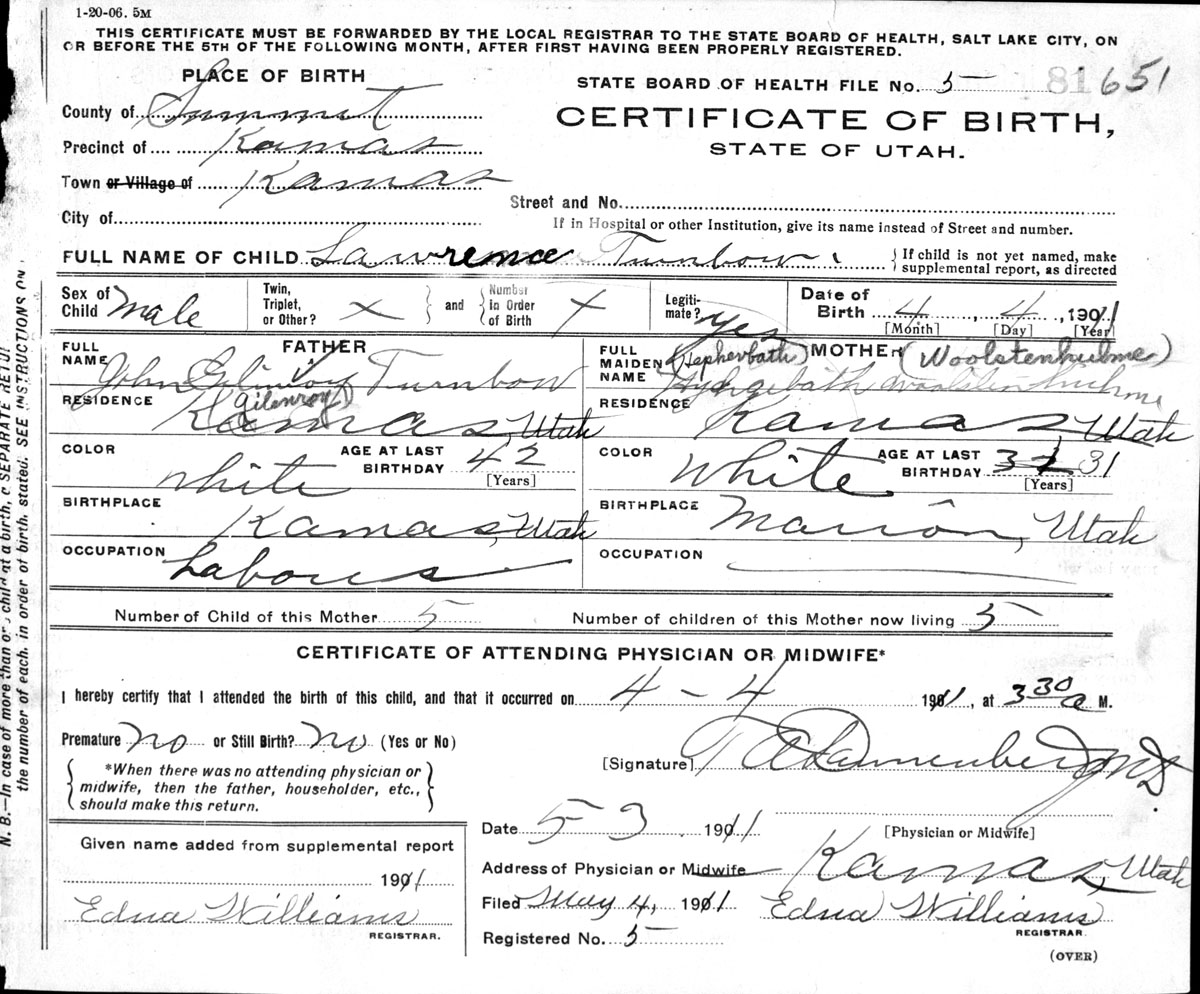 1-20-06. 5M
THIS CERTIFICATE MUST BE FORWARDED BY THE LOCAL REGISTRAR TO THE STATE BOARD OF HEALTH, SALT LAKE CITY, ON
OR BEFORE THE 5TH OF THE FOLLOWING MONTH, AFTER FIRST HAVING BEEN PROPERLY REGISTERED.
PLACE OF BIRTH
STATE BOARD OF HEALTH FILE No. 5 81 651
County of Summit
CERTIFICATE OF BIRTH,
Precinct of Kamas
STATE OF UTAH.
Town or Village of Kamas
Street and No.
City of
If in Hospital or other Institution, give its name instead of Street and number.
FULL NAME OF CHILD Lawrence Turnbow
If child is not yet named, make
supplemental report, as directed
Sex of Child Male
Twin, Triplet, or Other? X
and Number in Order of Birth X
Legiti-mate? Yes
Date of Birth 4, 4, 1911
[Month] [Day] [Year]
FATHER
FULL NAME John Turnbow
(Gilenroy)
MOTHER
FULL MAIDEN NAME (Hephevbath) (Woolstenhulme)
RESIDENCE Kamas, Utah
RESIDENCE Kamas, Utah
COLOR White
AGE AT LAST BIRTHDAY 42
[Years]
COLOR White
AGE AT LAST BIRTHDAY 32 31
[Years]
BIRTHPLACE Kamas, Utah
BIRTHPLACE Marion, Utah
OCCUPATION Labours
OCCUPATION
Number of Child of this Mother 5
Number of children of this Mother now living 5
CERTIFICATE OF ATTENDING PHYSICIAN OR MIDWIFE*
I hereby certify that I attended the birth of this child, and that it occurred on 4 - 4 1911, at 3 30 a M.
Premature no or Still Birth? no (Yes or No)
[Signature] Dannenberg MD.
*When there was no attending physician or
midwife, then the father, householder, etc.,
should make this return.
Date 5 3 1911
[Physician or Midwife]
Given name added from supplemental report
1901
Edna Williams
REGISTRAR.
Address of Physician or Midwife Kamas, Utah
Filed May 4, 1911 Edna Williams
REGISTRAR.
Registered No. 5
(OVER)
N. B.—In case of more than one child at a birth, a SEPARATE RETU
the number of each, in order of birth, stated. SEE INSTRUCTIONS ON